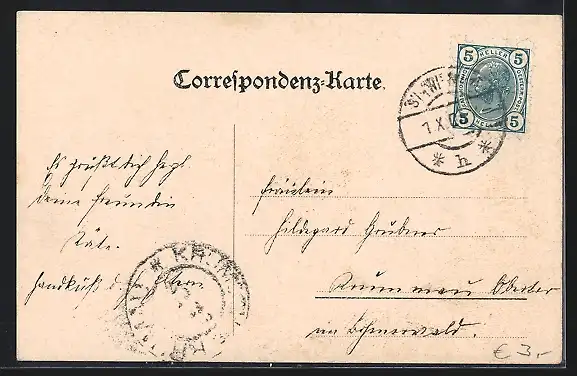 Correspondenz-Karte.
5 HELLER 5
5 HELLER 5
WIEN
1.X
* h *
Es grüßt dich herzl.
deine Freundin
Käte.
Handkuß d. Eltern.
Fräulein
Hildegard Grubner
Krummau
im Böhmerwald.
KRUM
€ 3,-